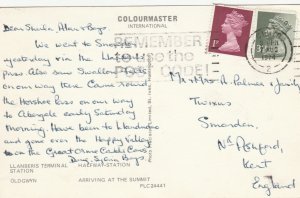 COLOURMASTER
INTERNATIONAL
Dear Sheila, Allan & Boys.
We went to Snowdon
yesterday via the Llanberis
pass. Also saw Swallow Falls
on our way there. Came round
the Horshoe Pass on our way
to Abergele early Saturday
Morning. Have been to Llandudno
and gone over the Happy Valley
on the Great Orme Cable Cars
REMEMBER
to use the
POST CODE!
1974
1P
Mr & Mrs A. Palmer & family
Twixus
Smarden,
Nr Ashford,
Kent
England
LLANBERIS TERMINAL
STATION
HALFWAY STATION
OLD GWYN
ARRIVING AT THE SUMMIT
PLC24441